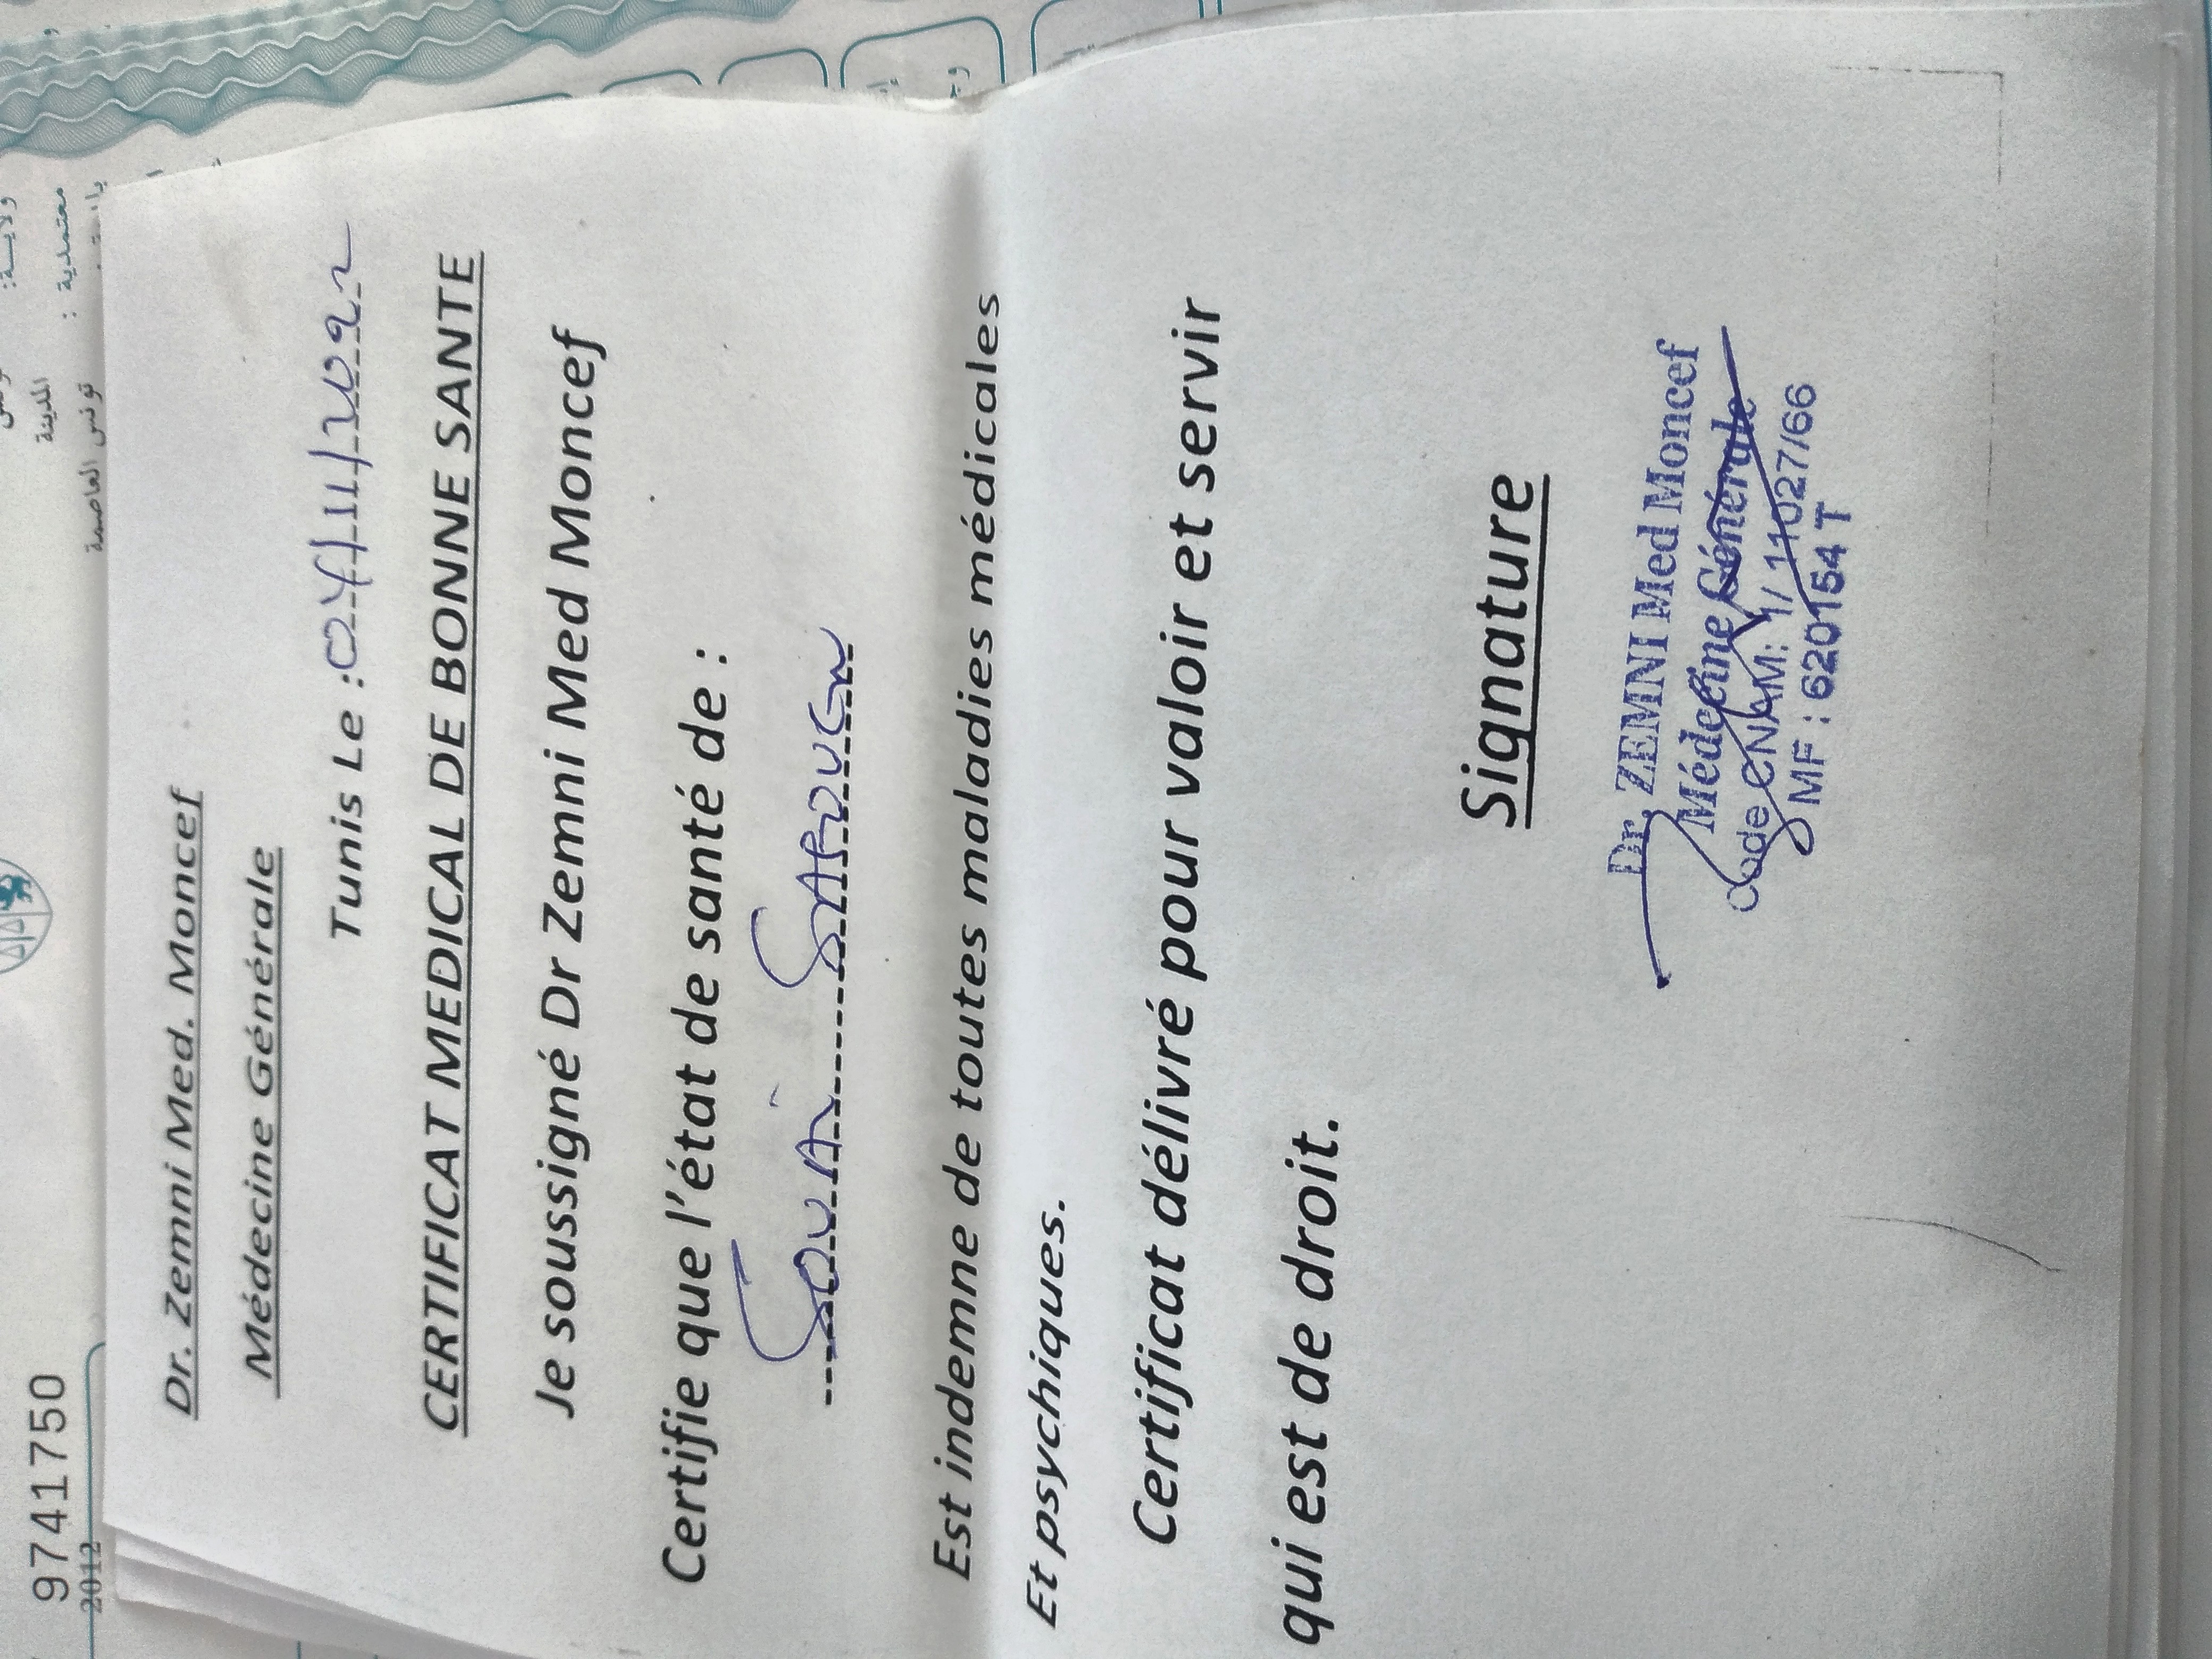 9741750
2012
ولايــة:
معتمدية :
المدينة
تونس العاصمة
Dr. Zemni Med. Moncef
Médecine Générale
Tunis Le :
CERTIFICAT MEDICAL DE BONNE SANTE
Je soussigné Dr Zemni Med Moncef
Certifie que l'état de santé de :
Est indemne de toutes maladies médicales
Et psychiques.
Certificat délivré pour valoir et servir
qui est de droit.
Signature
Dr. ZEMNI Med Moncef
Médecine Générale
Code CNAM: 1/ 11027/66
MF : 620154 T